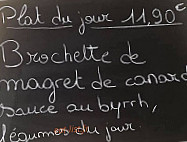 Plat du jour 11,90€
Brochette de
magret de canard
sauce au byrrh,
légumes du jour